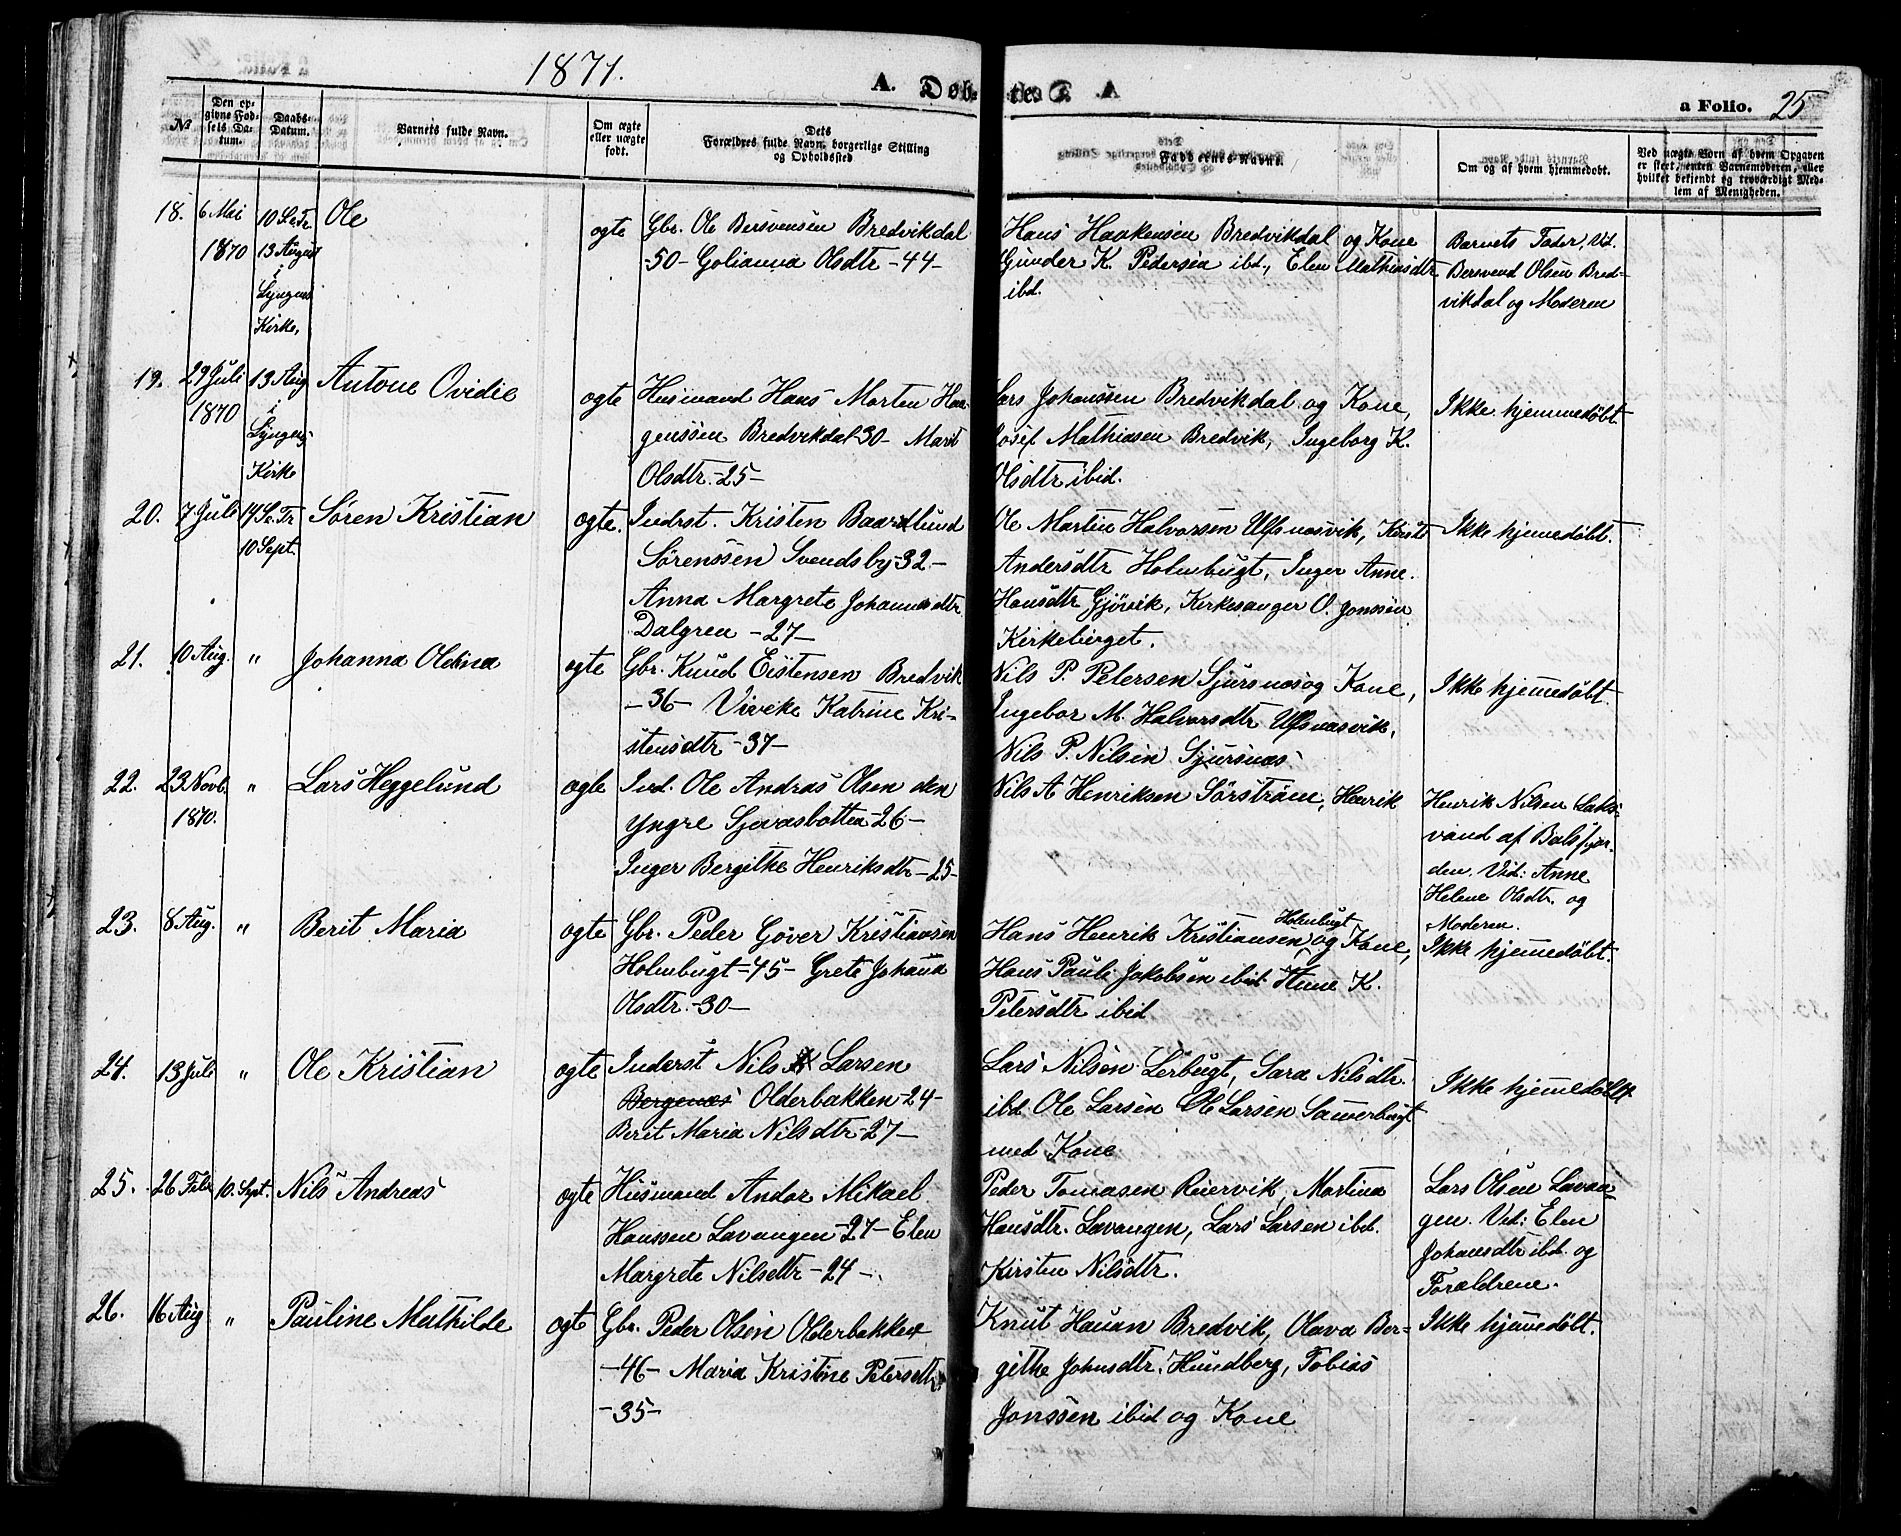 1871.
A. Døbte.
a Folio. 25
No
Den opgivne Fødsels Datum.
Daabs-Datum.
Barnets fulde Navn.
Om ægte eller uægte født.
Dets Forældres fulde Navn, borgerlige Stilling og Opholdssted
Faddernes Navne.
Om og af hvem hjemmedøbt.
Ved uægte Børn af hvem Opgaven er skeet, enten Barnemoderen, eller hvilket bekjendt og troværdigt Medlem af Menigheden.
18.
6 Mai
1870
10 S. e. Tr.
13 August
i
Lyngens
Kirke,
Ole
ogte
Gbr. Ole Bersvensen Bredvikdal
-50- Golianna Olsdtr -44-
Hans Haakensen Bredvikdal og Kone
Gunder K. Pedersen ibd., Elen Mathiasdtr
ibd.
Barnets Fader, Vid.
Bersvend Olsen Bred-
vikdal og Moderen
19.
29 Juli
1870
13 Aug
i
Lyngens
Kirke
Antone Ovidie
ogte
Husmand Hans Morten Haa-
genssen Bredvikdal-30- Marit
Olsdtr -25-
Lars Johanssen Bredvikdal og Kone,
Josef Mathiasen Bredvik, Ingeborg K.
Olsdtr ibid.
Ikke hjemmedøbt.
20.
7. Juli
14 S. e. Tr
10 Sept.
Søren Kristian
ogte.
Inderst. Kristen Baardlund
Sørenssen Svendsby-32-
Anna Margrete Johannesdtr
Dalgren -27-
Ole Martin Halvorsen Ulfsnæsvik,
Andersdtr Holmbugt, Inger Anne
Hansdtr Gjövik, Kirkesanger O. Jonssen
Kirkeberget.
Ikke hjemmedøbt.
21.
10 Aug.
"
Johanna Oldina
ogte
Gbr. Knud Eistensen Bredvik
-36- Viveke Katrine Kri-
stensdtr -37-
Nils P. Petersen Sjursnæs og Kone,
Ingebor M. Halvorsdtr Ulfsnæsvik,
Nils P. Nilsen Sjursnæs
Ikke hjemmedøbt.
22.
23 Novb.
1870.
"
Lars Heggelund
ogte
Ind. Ole Andras Olsen den
yngre Sjøvasbotten-26-
Inger Bergithe Henriksdtr -25-
Nils A Henriksen Sörsträum, Henrik
Henrik Nilsen Saks-
vand af Balsfjor-
den. Vid: Anne
Helene Olsdtr. og
Moderen.
23.
8 Aug.
"
Berit Maria
ogte
Gbr. Peder Gøver Kristiansen
Holmbugt -45- Grete Johanna
Olsdtr. -30-
Holmbugt
Hans Henrik Kristiansen og Kone,
Hans Pauli Jakobsen ibid. Hanne K.
Petersdtr ibid
Ikke hjemmedøbt.
24.
13 Juli
"
Ole Kristian
ogte
Inderst Nils Larsen
Bergenæs Olderbakken-24-
Berit Maria Nilsdtr -27-
Lars Nilsen Lerbugt, Sara Nilsdtr.
ibd Ole Larsen Ole Larsen Sauverbugt
med Kone
Ikke hjemmedøbt
25.
26 Febr
10. Sept.
Nils Andreas
ogte
Husmand Andor Mikael
Hanssen Lavangen -27- Elen
Margrete Nilsdtr -24-
Peder Tomasen Reiervik, Martina
Hansdtr. Lavangen, Lars Larsen ibd.
Kirsten Nilsdtr.
Lars Olsen Lavan-
gen. Vid: Elen
Johansdtr ibd. og
Forældrene.
26.
16 Aug
"
Pauline Mathilde
ogte
Gbr. Peder Olsen Olderbakken
-46- Maria Kristine Petersdtr
-35-
Knut Hauan Bredvik, Olava Ber-
githe Johnsdtr. Hundberg, Tobias
Jonssen ibid og Kone
Ikke hjemmedølt.